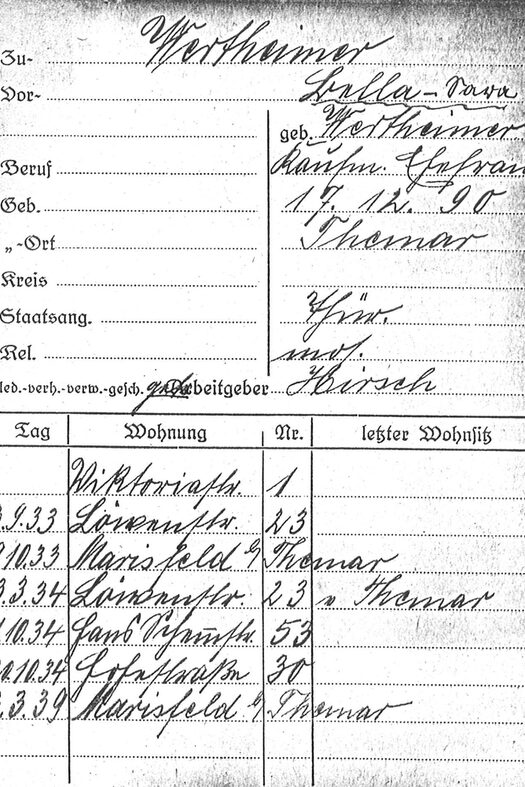 Zu- Wertheimer
Vor- Bella - Sara
geb. Wertheimer
Beruf Kaufm. Ehefrau
Geb. 17. 12. 90
„-Ort Themar
Kreis
Staatsang. Thür.
Rel. mos.
led.-verh.-verw.-gesch. Arbeitgeber Hirsch
Tag Wohnung Nr. letzter Wohnsitz
Viktoriastr. 1
.9.33 Löwenstr. 23
.10.33 Marisfeld b/ Themar
3.3.34 Löwenstr. 23 v Themar
.10.34 Hans Schemmstr. 53
.10.34 Hofestraße 30
.3.39 Marisfeld b/ Themar